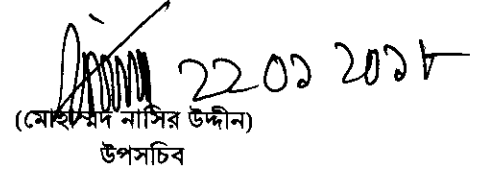 ২২ ০১ ২০১৮
(মোহাম্মদ নাসির উদ্দীন)
উপসচিব